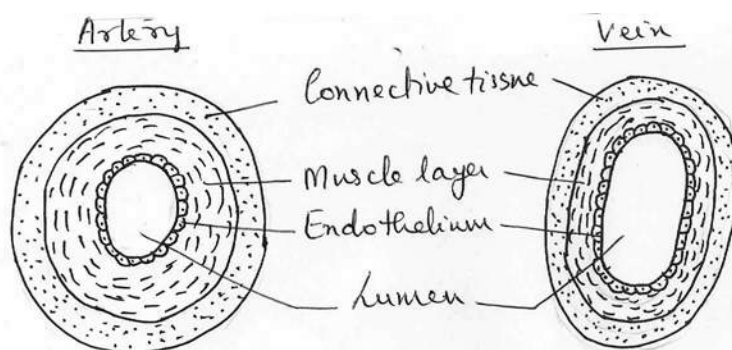 Artery
Vein
Connective tissue
Muscle layer
Endothelium
Lumen